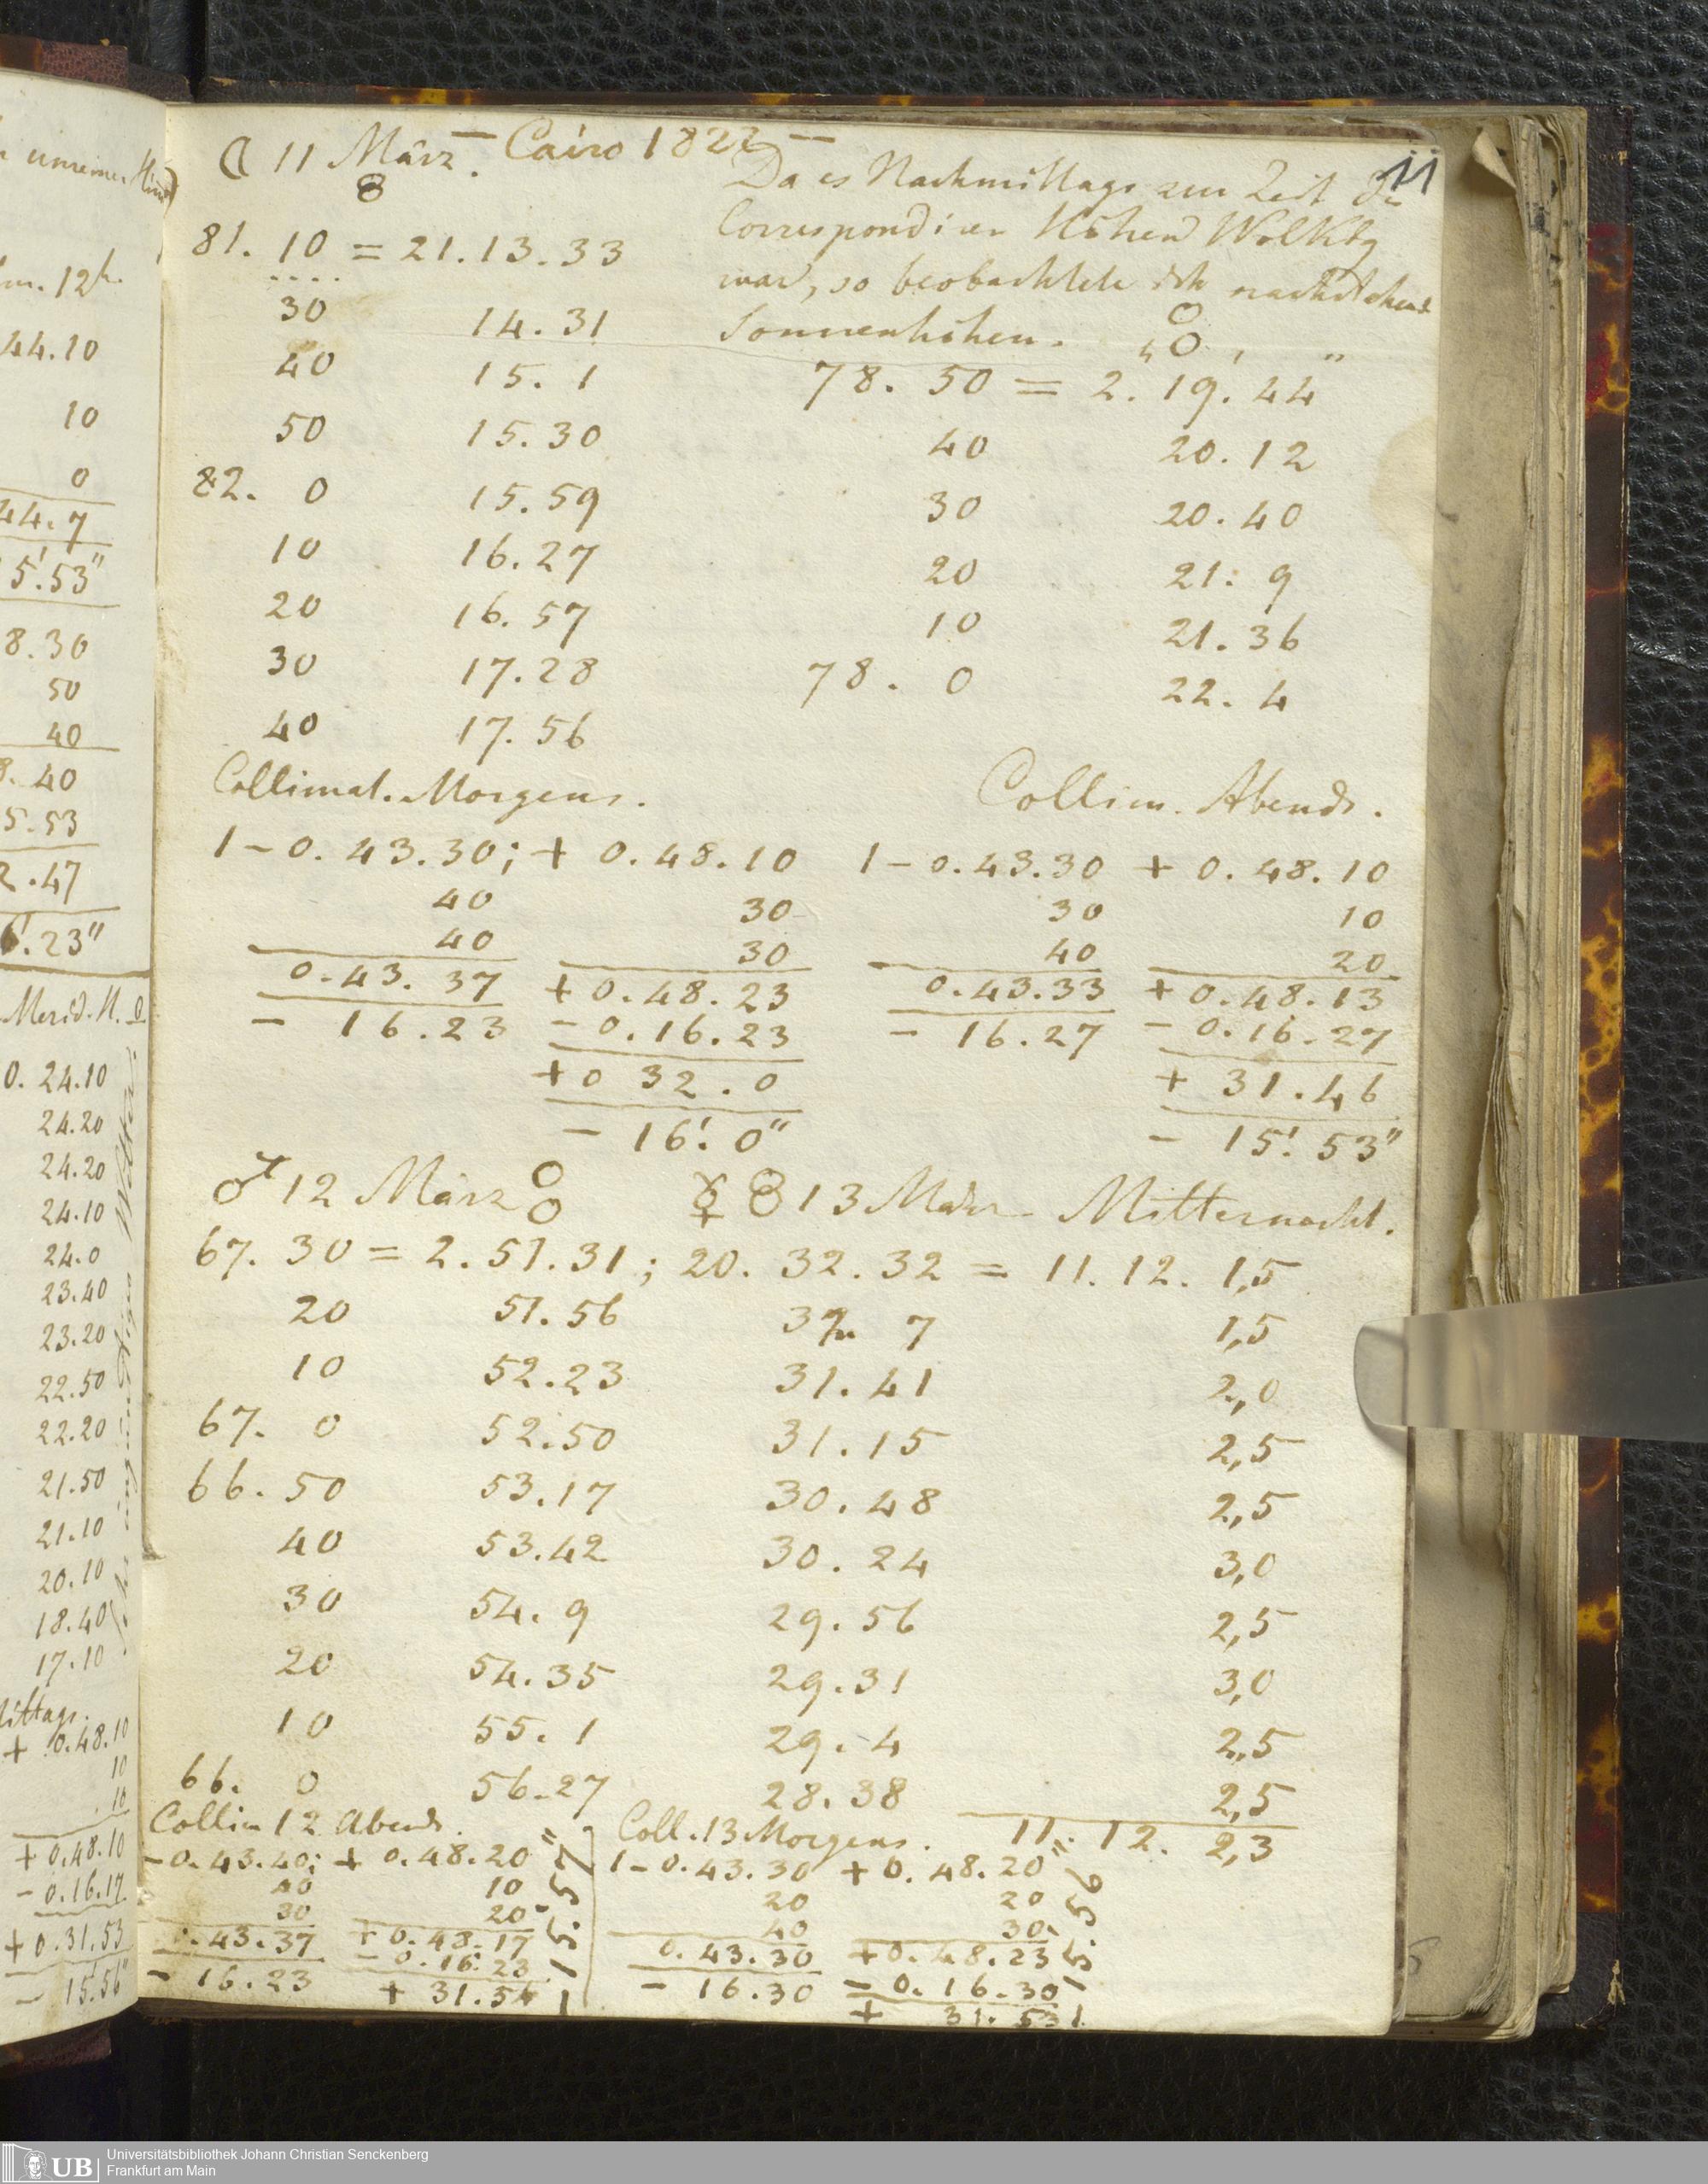 ☾ 11 März. — Cairo 1822 —
11
81. 10 = 21.13.33
30 14.31
40 15. 1
50 15.30
82. 0 15.59
10 16.27
20 16.57
30 17.28
40 17.56
Da es Nachmittags zur Zeit der
Correspondiren Höhen Wolkig
war, so beobachtete ich nachstehende
Sonnenhöhen.
78. 50 = 2. 19. 44
40 20. 12
30 20. 40
20 21. 9
10 21. 36
78. 0 22. 4
Collimat. Morgens.
1 - 0. 43.30; + 0. 48. 10
40 30
40 30
0.43. 37 + 0. 48. 23
- 16.23 - 0. 16. 23
+ 0 32. 0
- 16' 0"
Collim. Abends.
1 - 0. 43.30 + 0. 48. 10
30 10
40 20
0.43.33 + 0.48. 13
- 16. 27 - 0. 16. 27
+ 31. 46
- 15' 53"
♂ 12 März ☿ 13 März Mitternacht.
67. 30 = 2. 51. 31; 20. 32. 32 = 11. 12. 1,5
20 51. 56 32. 7 1,5
10 52. 23 31. 41 2,0
67. 0 52. 50 31. 15 2,5
66. 50 53. 17 30. 48 2,5
40 53. 42 30. 24 3,0
30 54. 9 29. 56 2,5
20 54. 35 29. 31 3,0
10 55. 1 29. 4 2,5
66. 0 56. 27 28. 38 2,5
11. 12. 2,3
Collim 12 Abends.
- 0. 43.40; + 0. 48. 20
40 10
30 20
.43.37 + 0. 48. 17
- 16. 23 - 0. 16. 23
+ 31. 54
- 15' 57"
Coll. 13 Morgens.
1 - 0. 43. 30 + 0. 48. 20
20 20
40 30
0. 43. 30 + 0. 48. 23
- 16. 30 - 0. 16. 30
+ 31. 53
- 15' 56"
44.10
10
0
44. 7
5'.53"
8.30
50
40
40
5.53
2.47
6'.23"
Merid. H.
0. 24.10
24.20
24.20
24.10
24.0
23.40
23.20
22.50
22.20
21.50
21.10
20.10
18.40
17.10
+ 0.48.10
10
10
+ 0.48.10
- 0.16.17
+ 0.31.53
- 15'.56"
UB Universitätsbibliothek Johann Christian Senckenberg
Frankfurt am Main